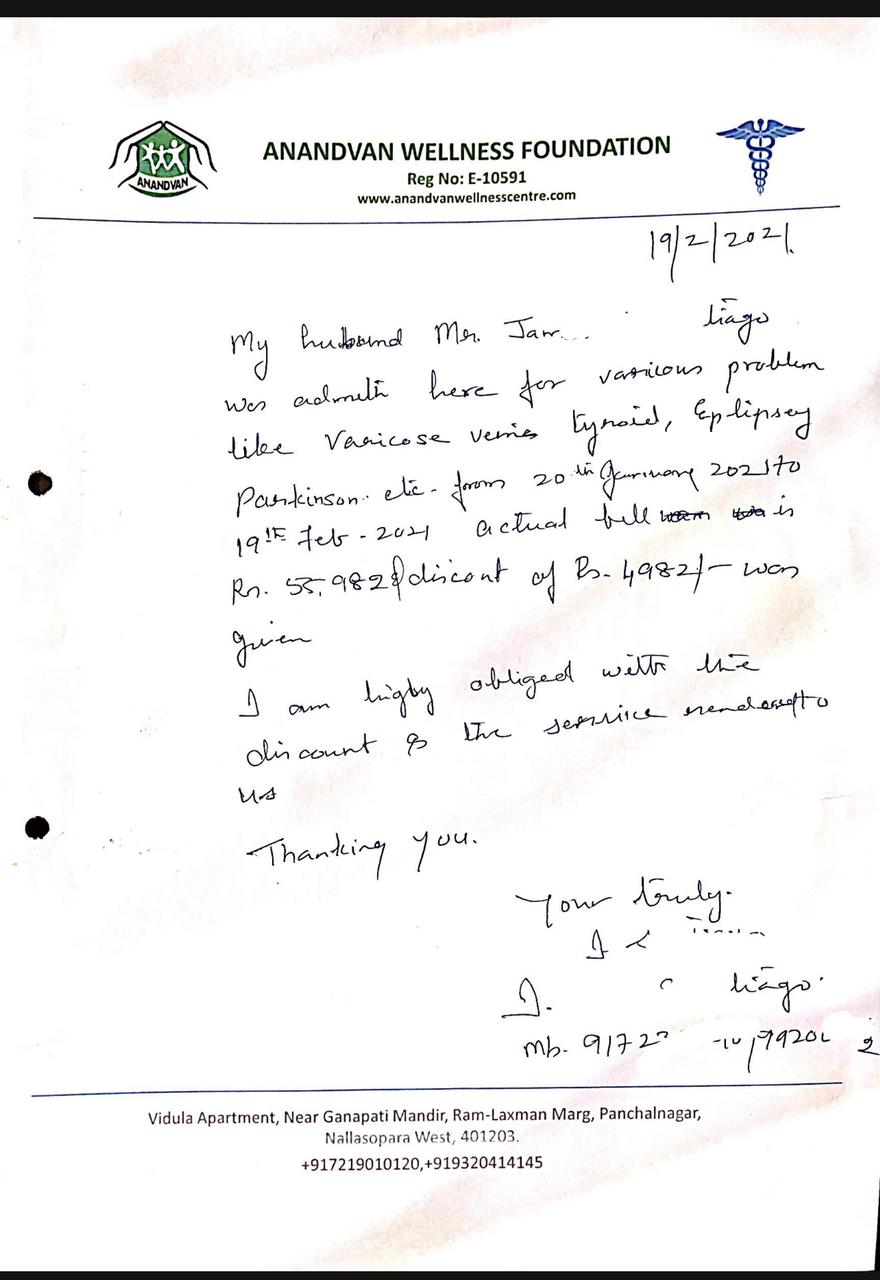 ANANDVAN
ANANDVAN WELLNESS FOUNDATION
Reg No: E-10591
www.anandvanwellnesscentre.com
19/2/2021.
My husband Mr. tiago
was admit here for various problem
like Varicose veins tyroid, Eplipsey
Parkinson. etc. from 20th January 2021 to
19th Feb - 2021 actual bill is
Rs. 55,982 & discont of Rs. 4982/- was
given
I am higby obliged with the
discount & the service rendered to
us
Thanking you.
Your truly.
I
I. tiago.
Mb. 9172
Vidula Apartment, Near Ganapati Mandir, Ram-Laxman Marg, Panchalnagar,
Nallasopara West, 401203.
+917219010120,+919320414145